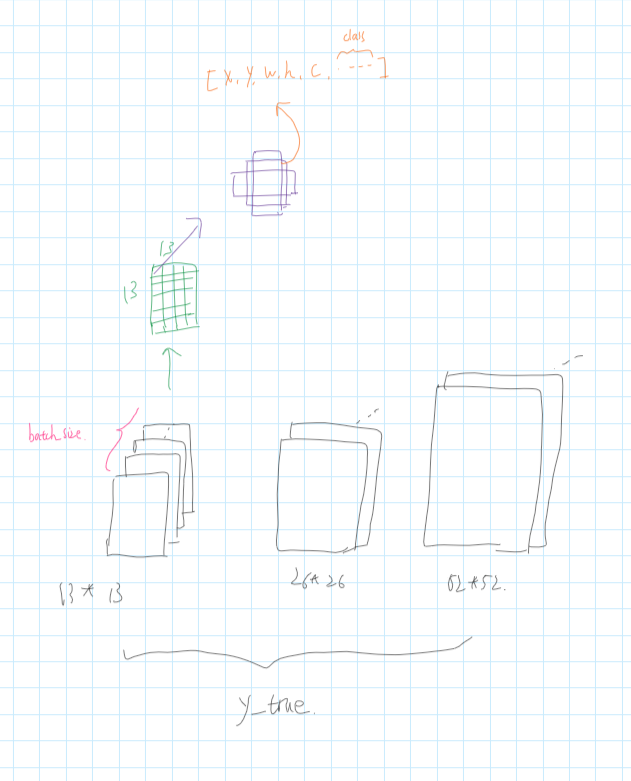 class
[ x, y, w, h, c, --- ]
13
13
batch size.
13 * 13
26 * 26
52 * 52.
y_true.